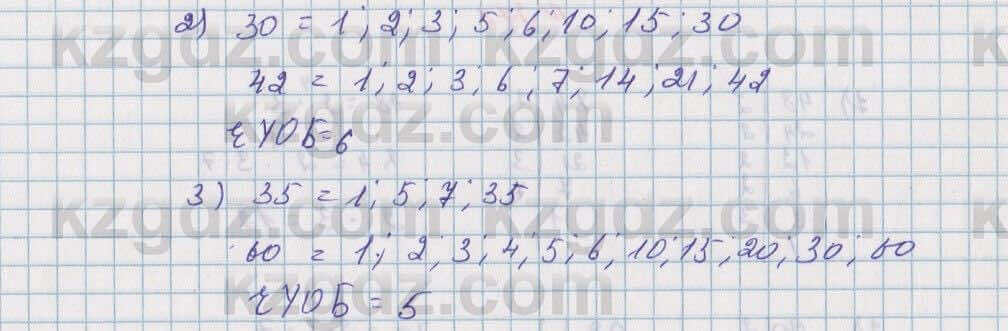 2) 30 = 1; 2; 3; 5; 6; 10; 15; 30
42 = 1; 2; 3; 6; 7; 14; 21; 42
ЕҮОБ=6
3) 35 = 1; 5; 7; 35
60 = 1; 2; 3; 4; 5; 6; 10; 15; 20; 30; 60
ЕҮОБ = 5
kzgdz.com